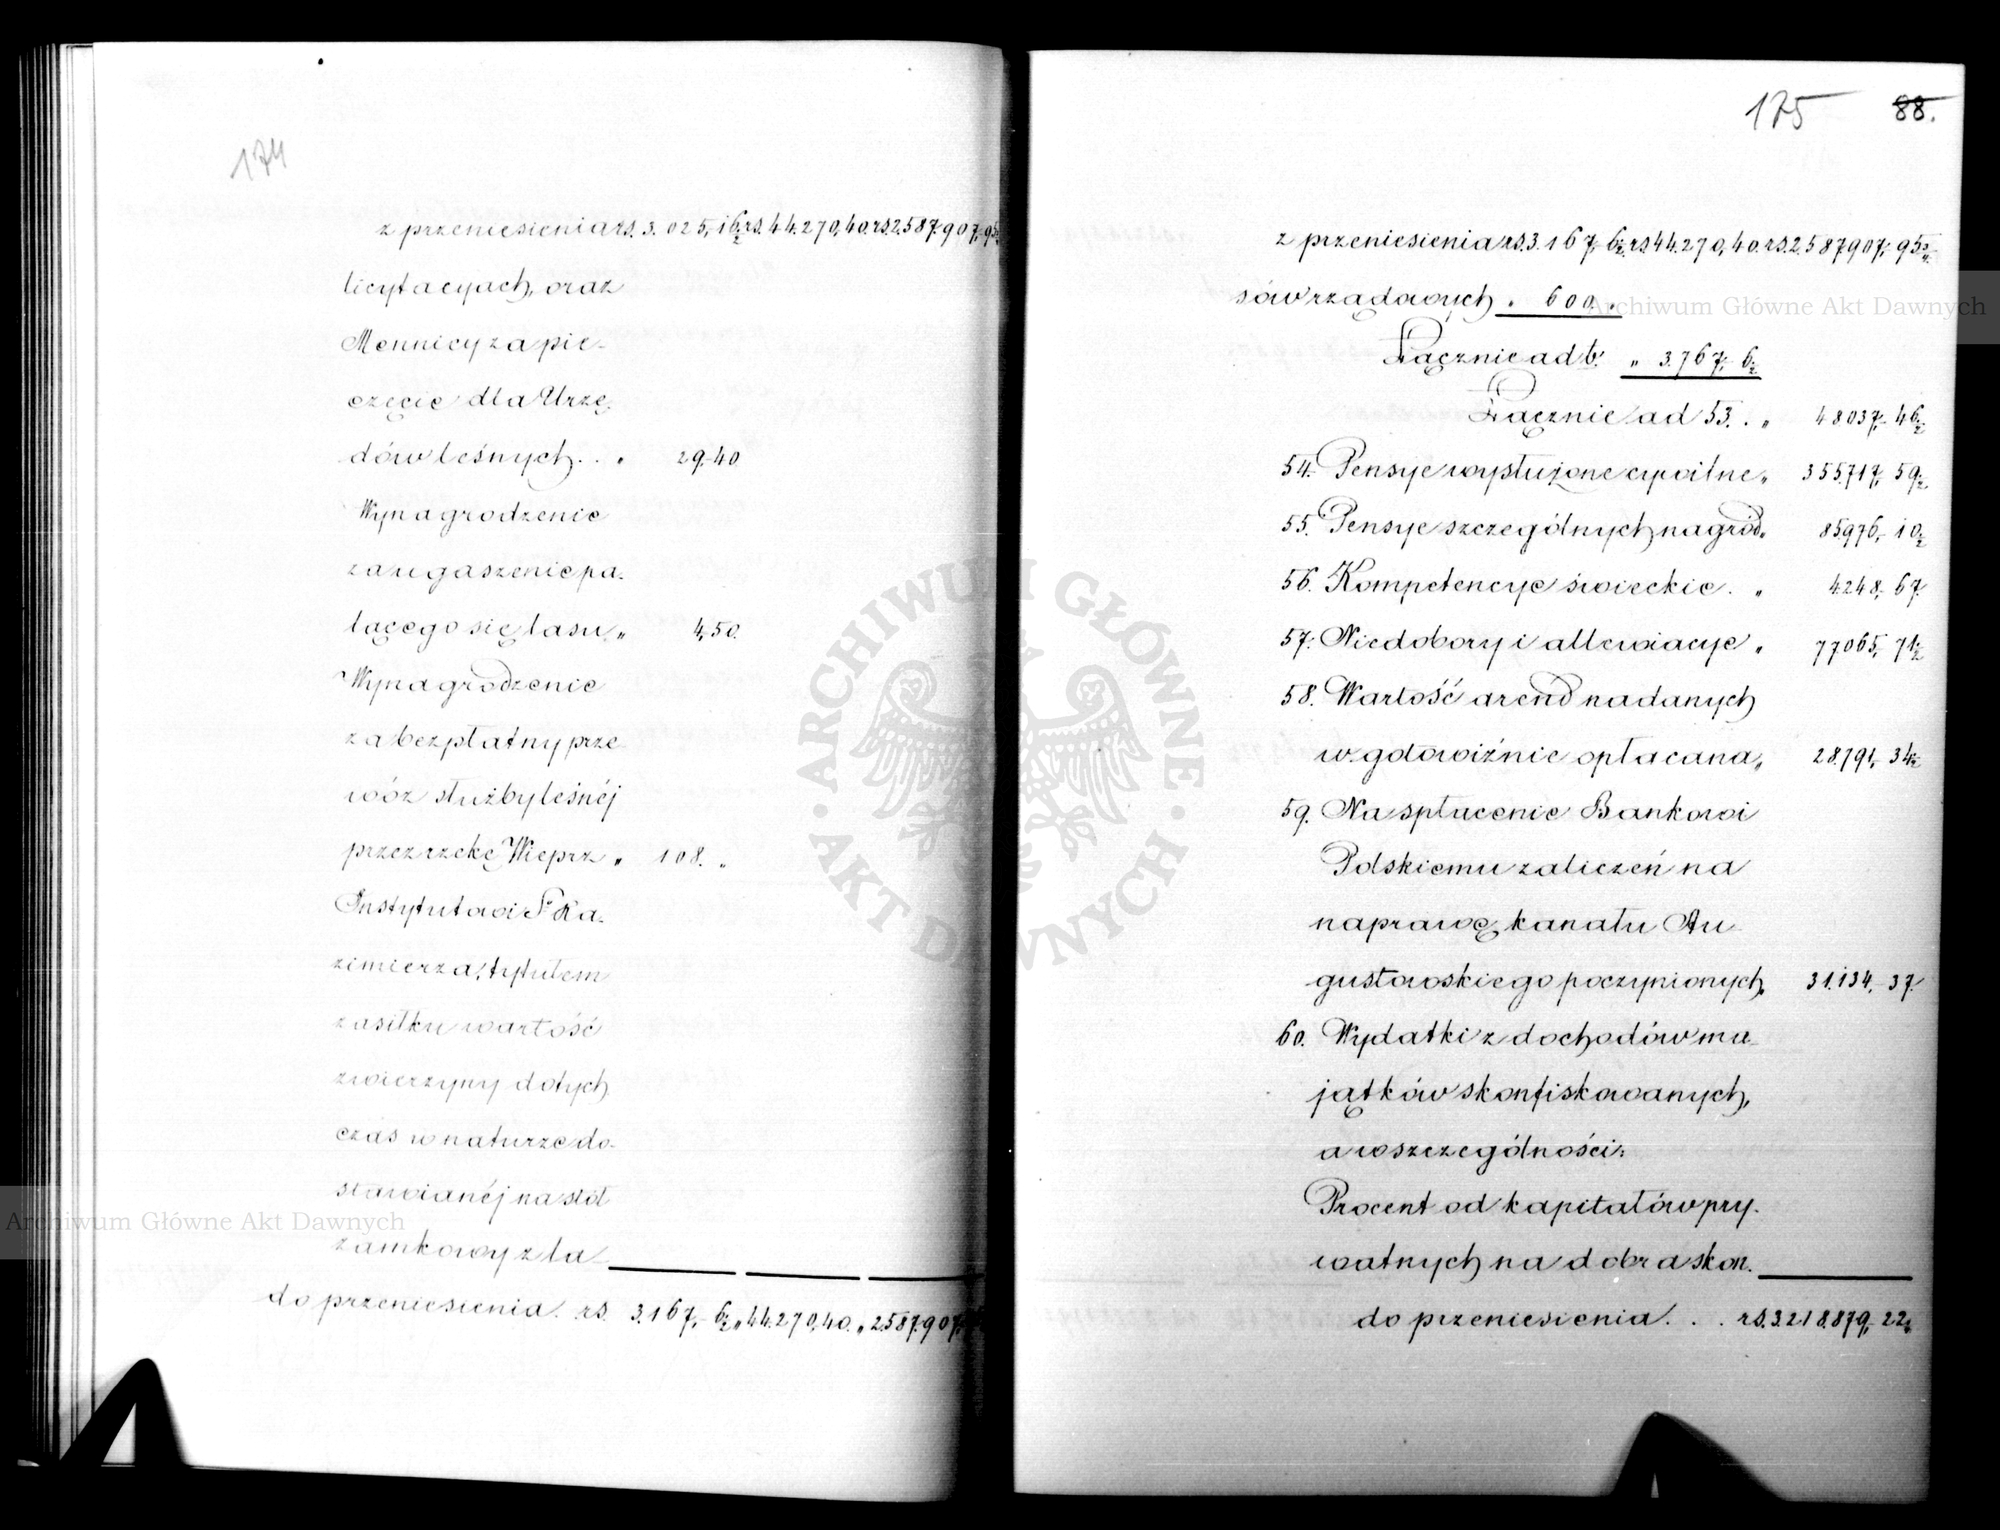 174
z przeniesienia rs. 3.025,16½ rs. 44.270,40. rs. 2.587.907,95
licytacyach, oraz
Mennicy za pie-
częcie dla Urzę-
dów leśnych . . „ 29,-40.
Wynagrodzenie
za ugaszenie pa-
lącego się lasu „ 4,-50.
Wynagrodzenie
za bezpłatny prze-
wóz służby leśnéj
przez rzekę Wieprz „ 108. „
Instytutowi Sgo Ka-
zimierza, tytułem
zasiłku wartość
zwierzyny dotych
czas w naturze do-
stawianéj na stół
zamkowy z la-
do przeniesienia . rs. 3.167,-6½ „ 44.270,40. „ 2.587.907,
175 88.
z przeniesienia rs. 3.167,-6½ rs. 44.270,40. rs. 2.587.907,-95½
sów rządowych „ 600. „
Łącznie ad b. „ 3.767,-6½
Łącznie ad 53. . „ 48.037,-46½
54. Pensye wysłużone cywilne „ 355.717,-59½
55. Pensye szczególnych nagród „ 85.976,-10½
56. Kompetencye świeckie . „ 4.248,-67.
57. Niedobory i allewiacye „ 77.065,-71½
58. Wartość arend nadanych
w gotowiźnie opłacana „ 28.791,-34½
59. Na spłacenie Bankowi
Polskiemu zaliczeń na
naprawę kanału Au-
gustowskiego poczynionych „ 31.134,-37.
60. Wydatki z dochodów ma-
jątków skonfiskowanych,
a w szczególności:
Procent od kapitałów pry-
watnych na dobra skon-
do przeniesienia . . . rs. 3.218.879,-22½
Archiwum Główne Akt Dawnych
Archiwum Główne Akt Dawnych
ARCHIWUM GŁÓWNE · AKT DAWNYCH ·